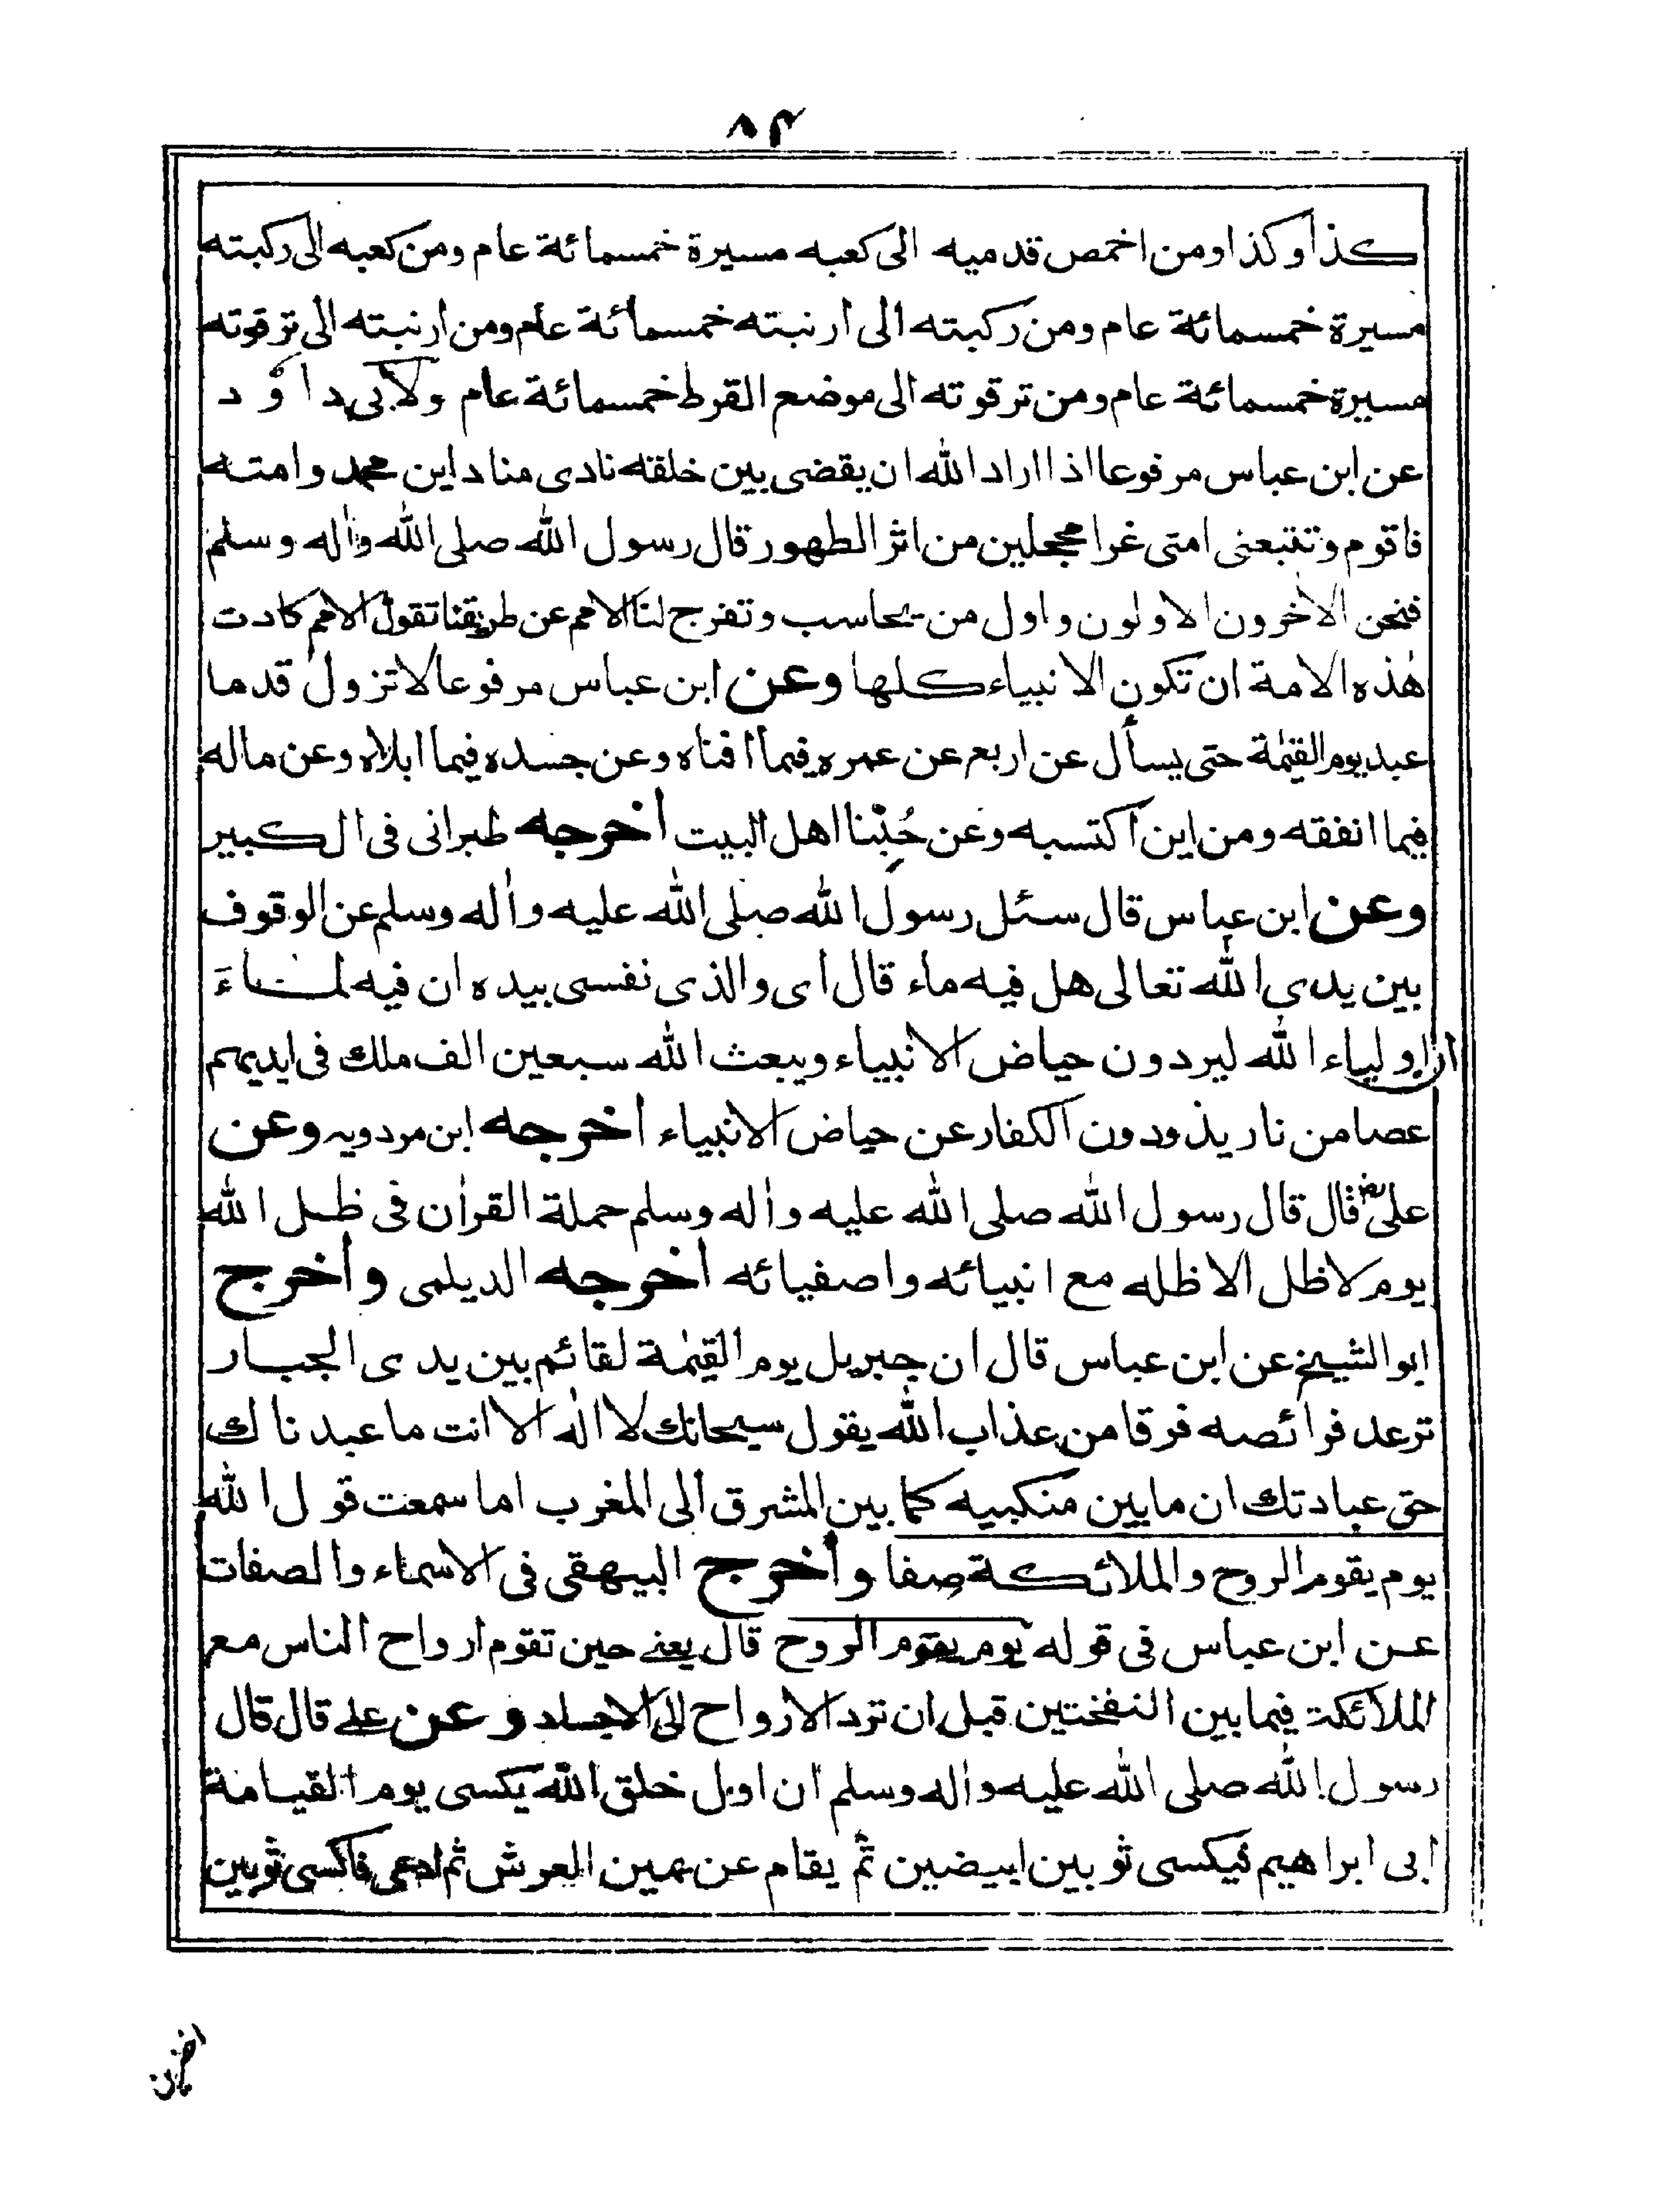 ٨٤
كذا وكذا ومن اخمص قدميه الى كعبه مسيرة خمسمائة عام ومن كعبه الى ركبته
مسيرة خمسمائة عام ومن ركبته الى ارنبته خمسمائة عام ومن ارنبته الى ترقوته
مسيرة خمسمائة عام ومن ترقوته الى موضع القرط خمسمائة عام ولابى داؤد
عن ابن عباس مرفوعا اذا اراد الله ان يقضى بين خلقته نادى مناد اين محمد وامته
فاقوم وتتبعنى امتى غرا محجلين من اثر الطهور قال رسول الله صلى الله واٰله وسلم
فنحن الاٰخرون الاولون واول من يحاسب وتفرج لنا الامم عن طريقنا تقول الامم كادت
هٰذه الامة ان تكون الانبياء كلها وعن ابن عباس مرفوعا لا تزول قدما
عبد يوم القيٰمة حتى يسأل عن اربع عن عمره فيما افناه وعن جسده فيما ابلاه وعن ماله
فيما انفقه ومن اين اكتسبه وعن حُبِّنا اهل البيت أخرجه طبرانى فى الكبير
وعن ابن عباس قال سئل رسول الله صلى الله عليه واٰله وسلم عن الوقوف
بين يدى الله تعالى هل فيه ماء قال اى والذى نفسى بيده ان فيه لماءَ
ان اولياء الله ليردون حياض الانبياء ويبعث الله سبعين الف ملك فى ايديهم
عصا من نار يذودون الكفار عن حياض الانبياء أخرجه ابن مردويه وعن
علىؓ قال قال رسول الله صلى الله عليه واٰله وسلم حملة القراٰن فى ظل الله
يوم لا ظل الا ظله مع انبيائه واصفيائه أخرجه الديلمى وأخرج
ابو الشيخ عن ابن عباس قال ان جبريل يوم القيٰمة لقائم بين يدى الجبار
ترعد فرائصه فرقا من عذاب الله يقول سبحانك لا اله الا انت ما عبدناك
حق عبادتك ان ما بين منكبيه كما بين المشرق الى المغرب اما سمعت قول الله
يوم يقوم الروح والملائكة صفا وأخرج البيهقى فى الاسماء والصفات
عن ابن عباس فى قوله يوم يقوم الروح قال يعنے حين تقوم ارواح الناس مع
الملائكة فيما بين النفختين قبل ان ترد الارواح الى الاجساد وعن علے قال قال
رسول الله صلى الله عليه واٰله وسلم ان اول خلق الله يكسى يوم القيامة
ابى ابراهيم فيكسى ثوبين ابيضين ثم يقام عن يمين العرش ثم ادعى فاكسى ثوبين